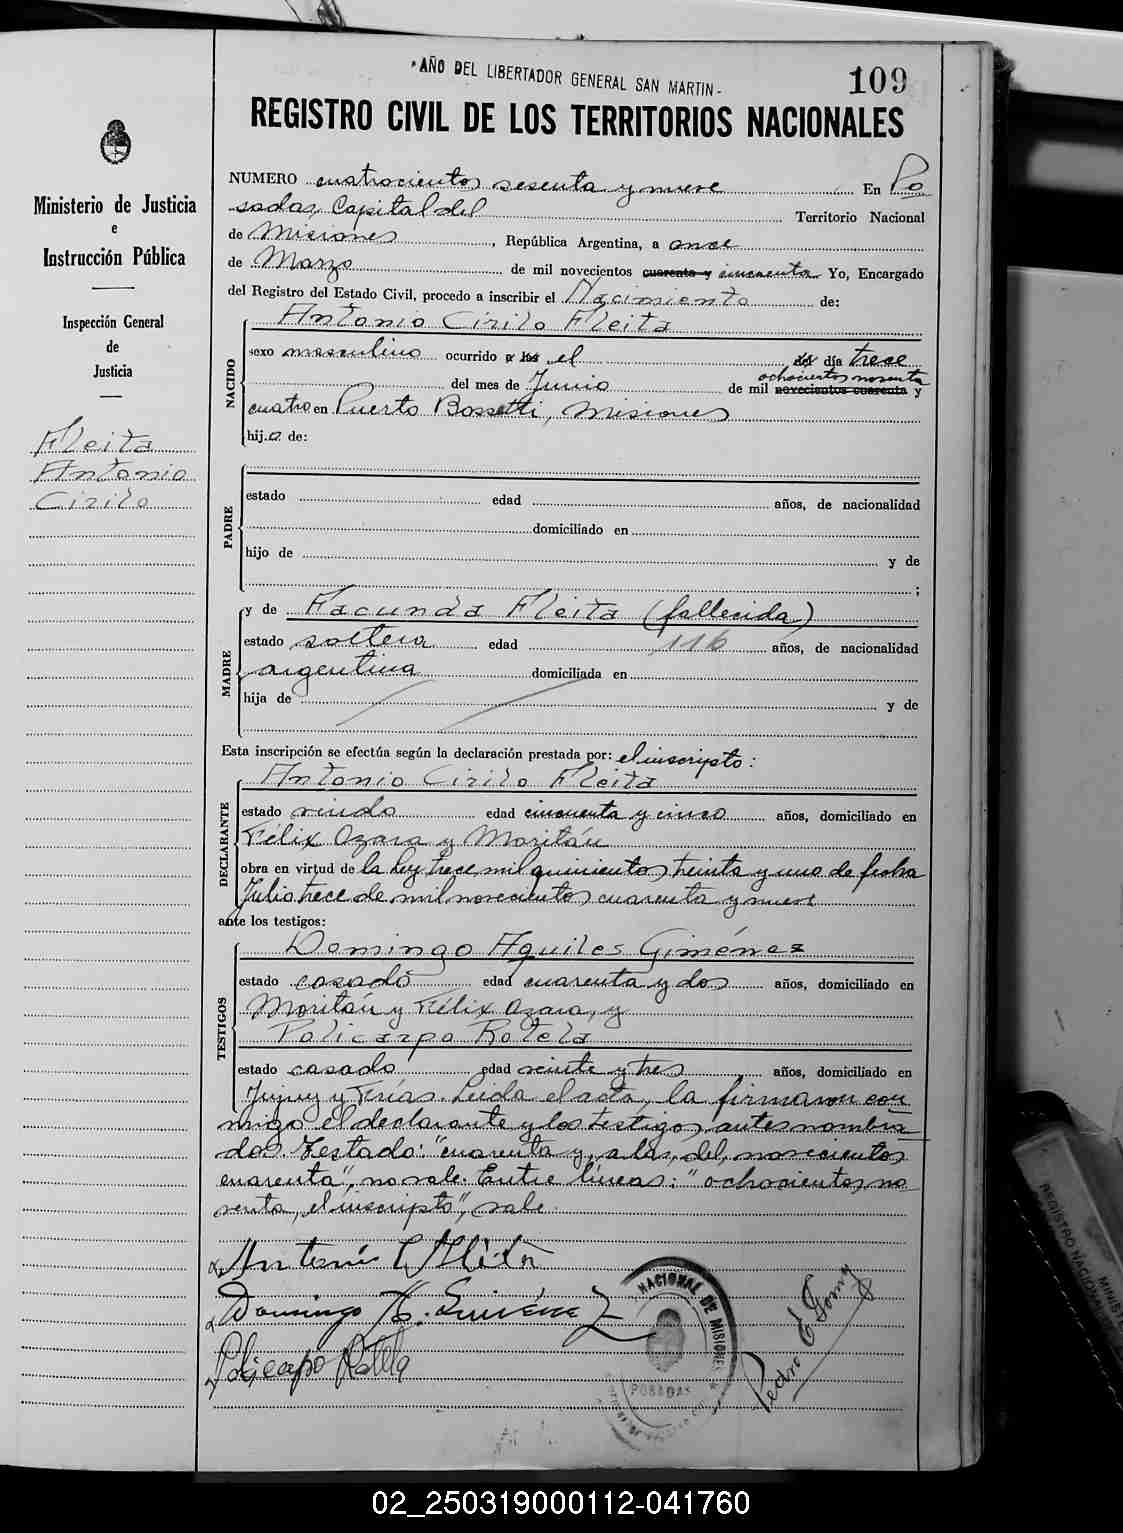 "AÑO DEL LIBERTADOR GENERAL SAN MARTIN"
109
REGISTRO CIVIL DE LOS TERRITORIOS NACIONALES
Ministerio de Justicia
e
Instrucción Pública
Inspección General
de
Justicia
Fleita
Antonio
Cirilo
NUMERO cuatrocientos sesenta y nueve En Po
sadas, Capital del Territorio Nacional
de Misiones, República Argentina, a once
de Marzo de mil novecientos cuarenta y cincuenta Yo, Encargado
del Registro del Estado Civil, procedo a inscribir el Nacimiento de:
NACIDO
Antonio Cirilo Fleita
sexo masculino ocurrido a las el del día trece
ochocientos noventa
del mes de Junio de mil novecientos cuarenta y
cuatro en Puerto Bossetti, Misiones
hijo de:
PADRE
estado edad años, de nacionalidad
domiciliado en
hijo de y de
;
MADRE
y de Facunda Fleita (fallecida)
estado soltera edad 116 años, de nacionalidad
argentina domiciliada en
hija de y de
Esta inscripción se efectúa según la declaración prestada por: el inscripto:
DECLARANTE
Antonio Cirilo Fleita
estado viudo edad cincuenta y cinco años, domiciliado en
Félix Azara y Moritán
obra en virtud de la ley trece mil quinientos treinta y uno de fecha
Julio trece de mil novecientos cuarenta y nueve
ante los testigos:
TESTIGOS
Domingo Aquiles Giménez
estado casado edad cuarenta y dos años, domiciliado en
Moritán y Félix Azara, y
Policarpo Rotela
estado casado edad veinte y tres años, domiciliado en
Jujuy y Frías. Leída el acta, la firmaron con
migo el declarante y los testigos antes nombra
dos. Testado: "cuarenta y, a las, del, novecientos
cuarenta", no vale. Entre líneas: "ochocientos no
venta, el inscripto", vale.
Antonio C Fleita
Domingo A. Giménez
Policarpo Rotela
NACIONAL DE MISIONES
POSADAS
Pedro E Gomy
REGISTRO NACIONAL
MINISTE
02_250319000112-041760